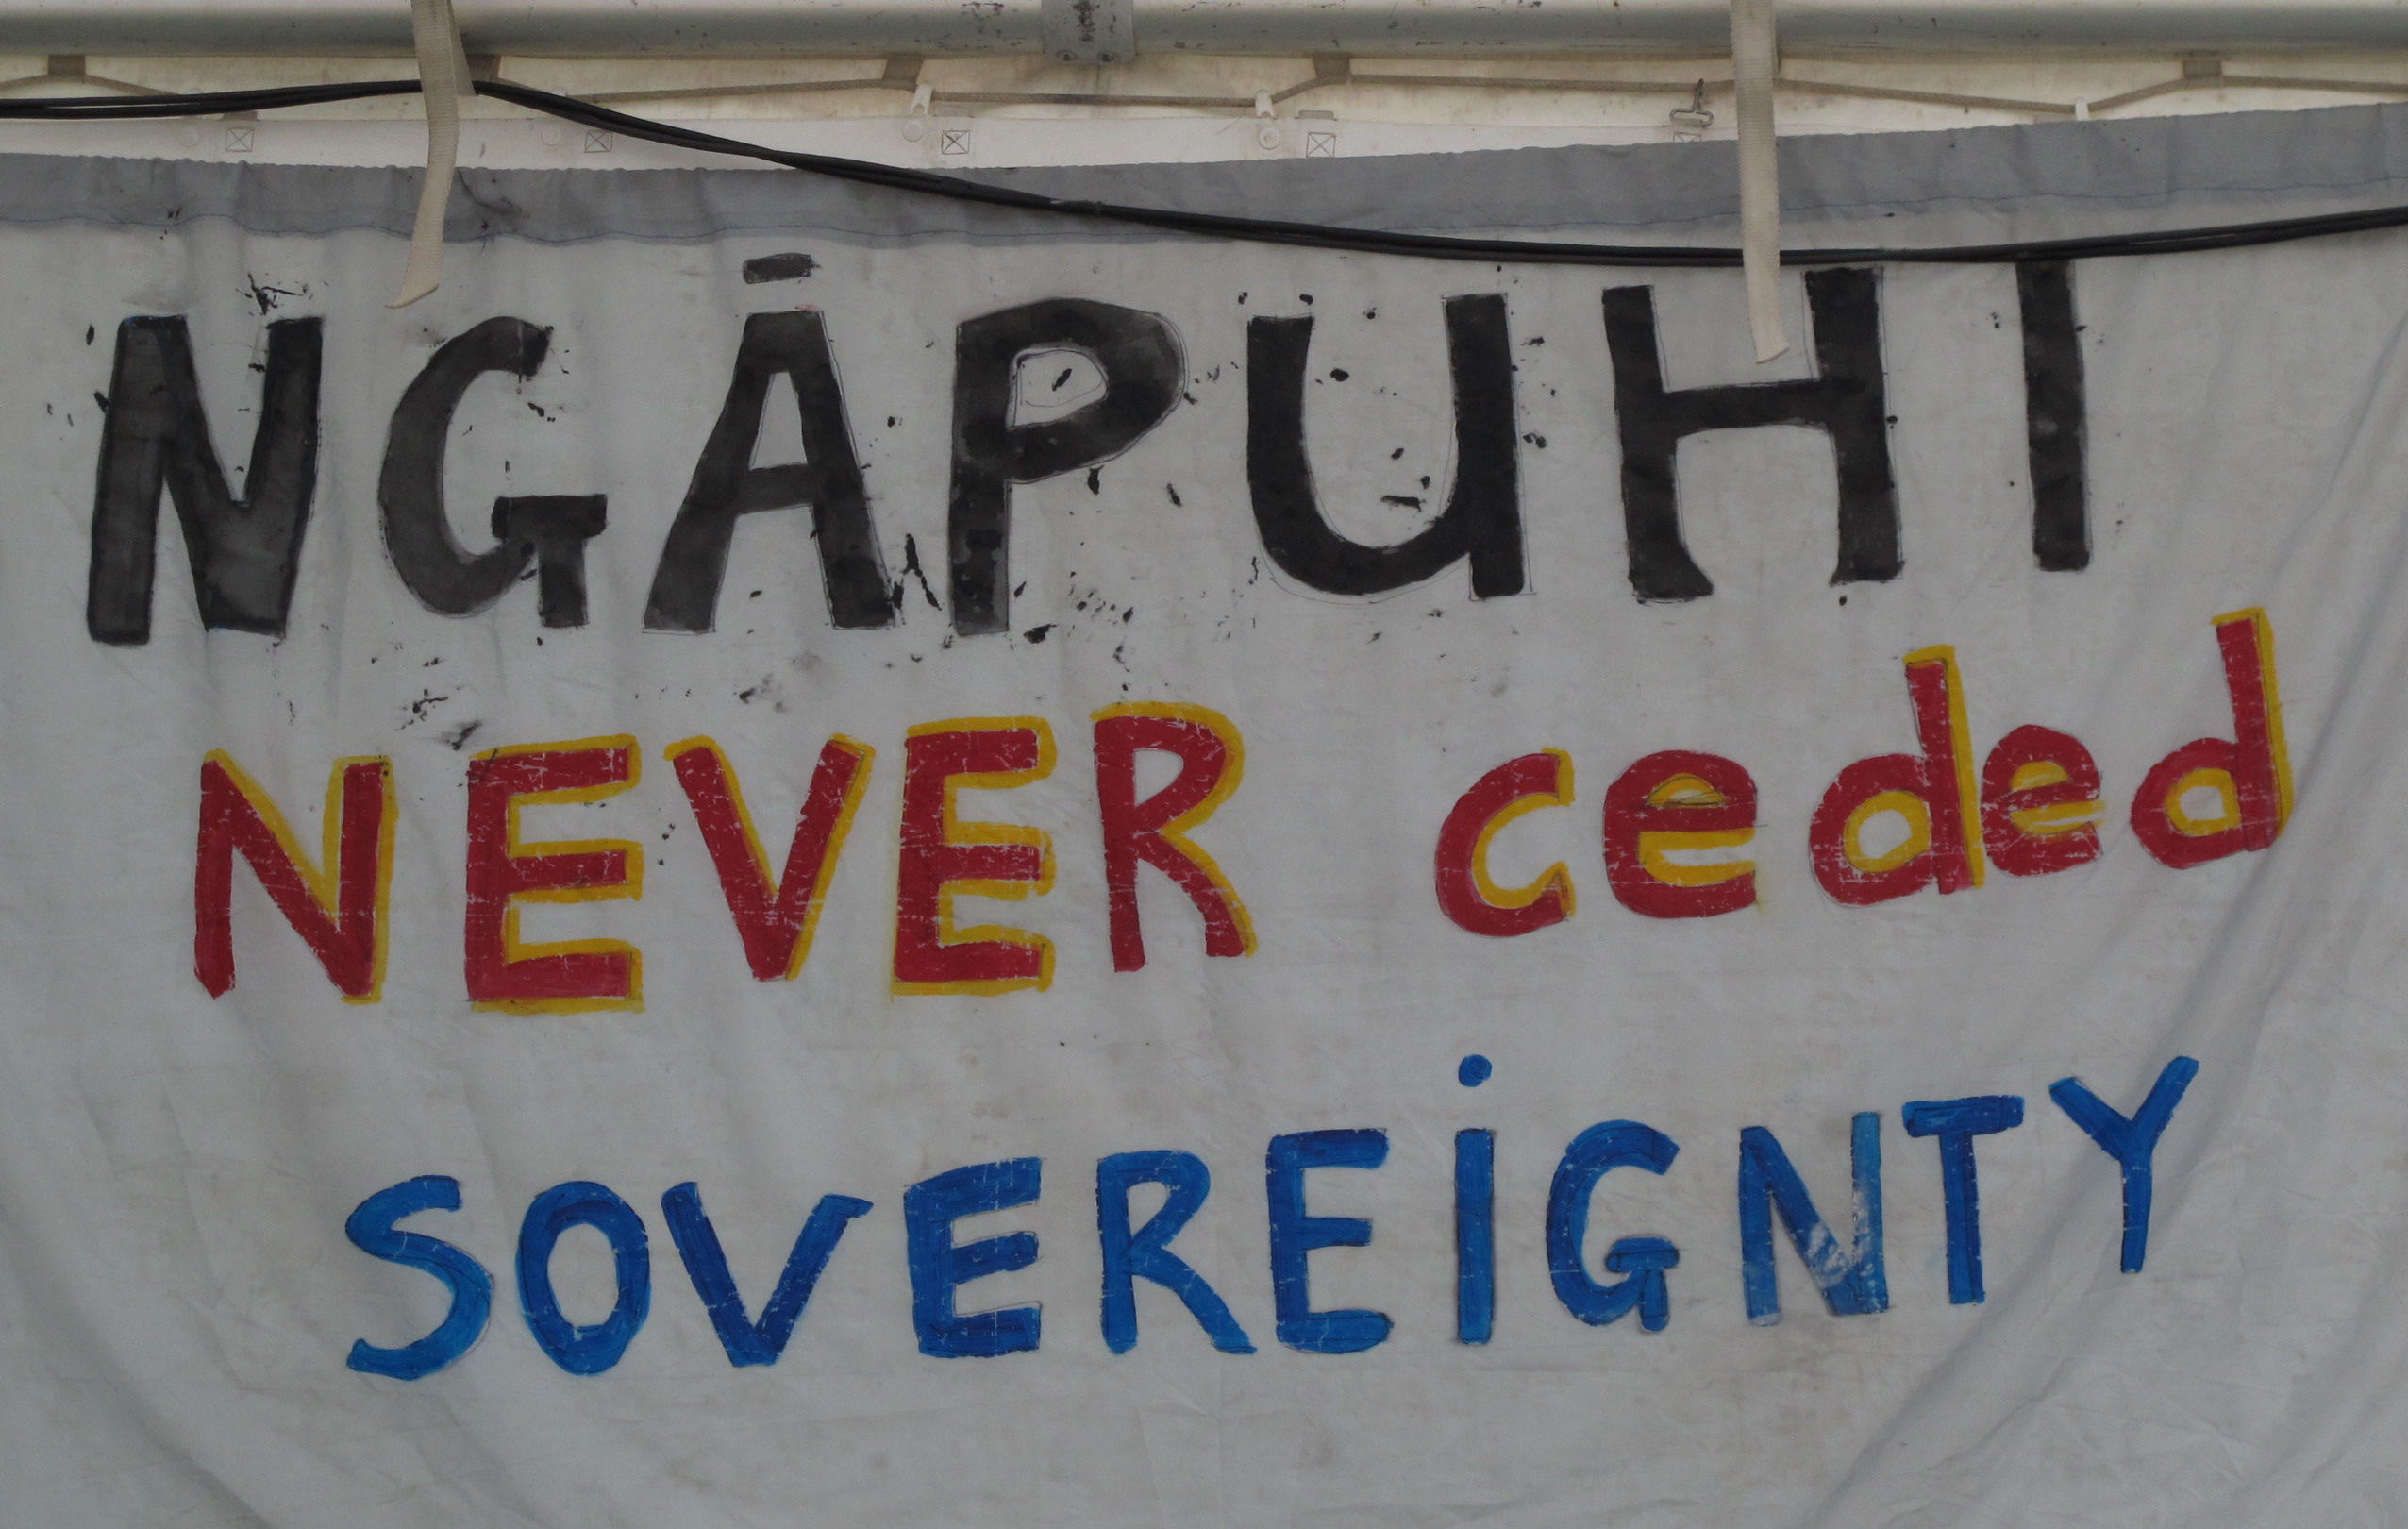 NGĀPUHI
NEVER ceded
SOVEREiGNTY